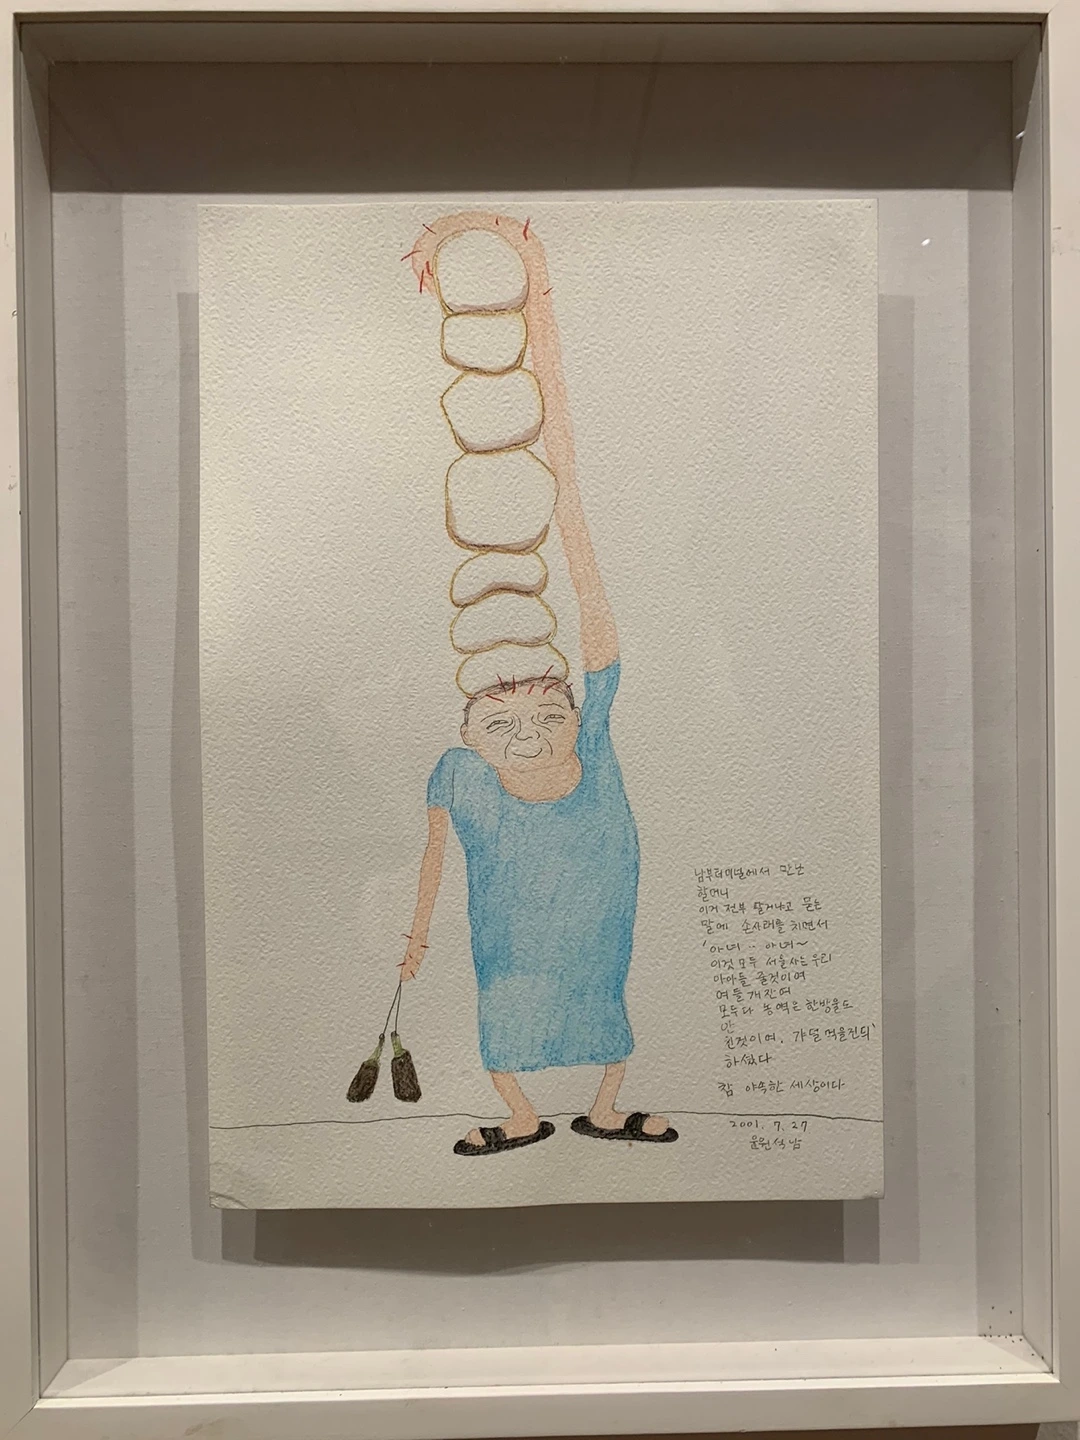 남부터미널에서 만난
할머니
이거 전부 팔거냐고 묻는
말에 손사래를 치면서
'아녀 .. 아녀~
이것 모두 서울사는 우리
아아들 줄것이여
여들개잔여
모두다 농약은 한방울도
안
친것이여, 갸덜 먹을진듸'
하셨다
참 야속한 세상이다
2001. 7. 27
윤원석남